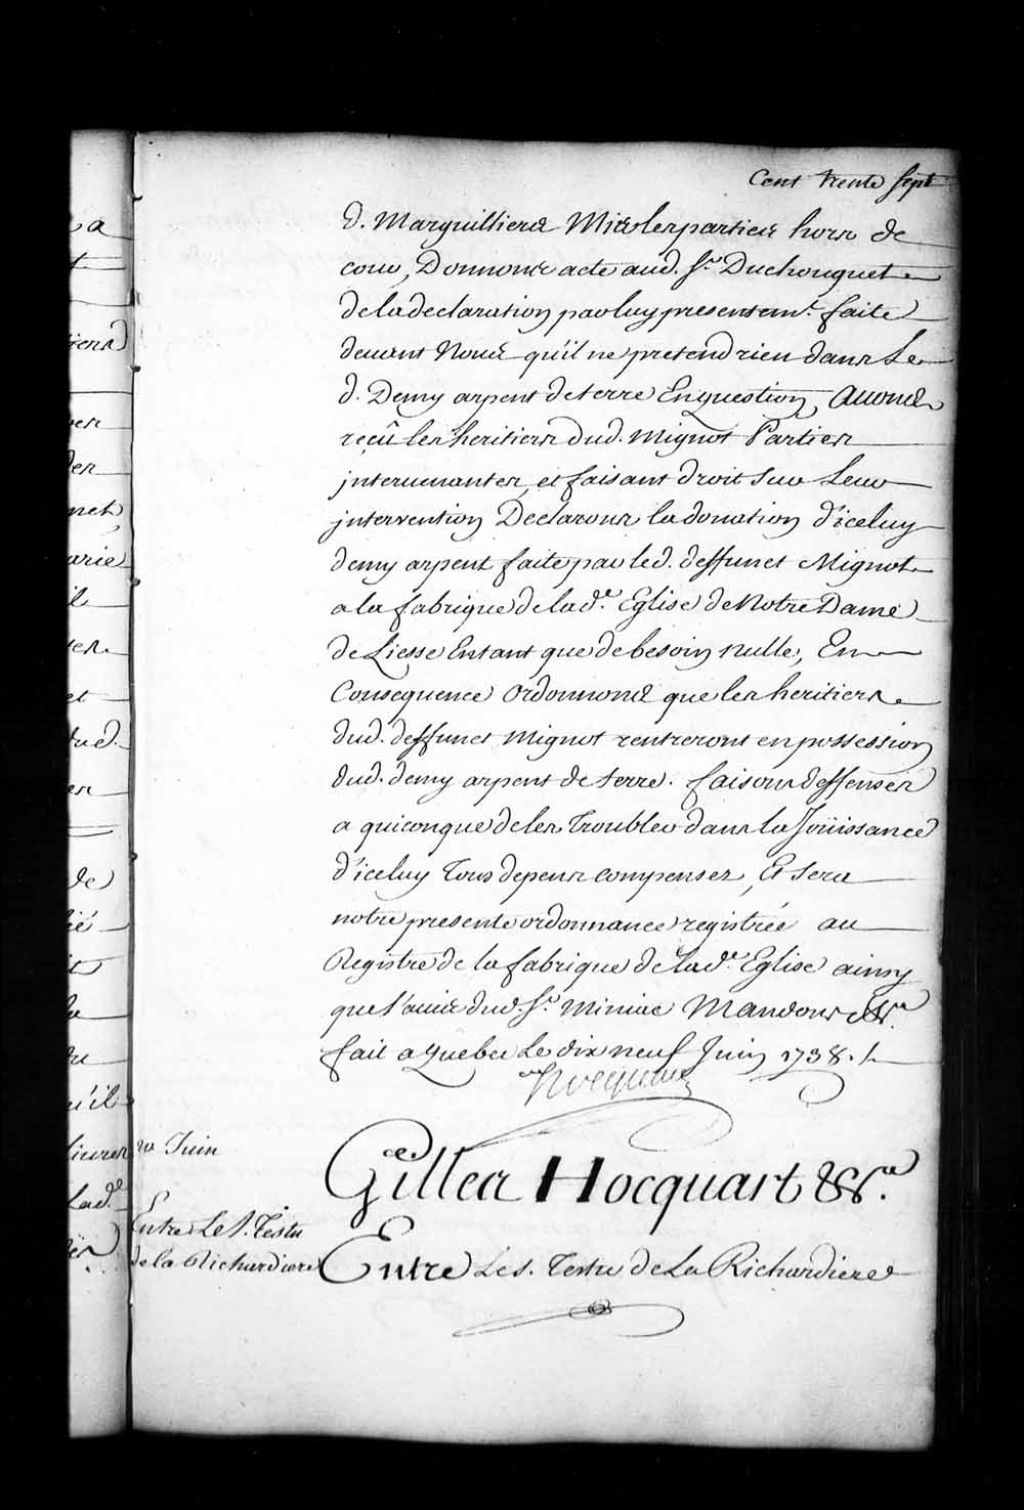 Cent trente sept
d. Marguilliers Mis les parties hors de
cour, Donnons acte aud. Sr. Duchouquet
de la declaration par luy presentemt. faite
devant Nous qu'il ne pretend rien dans Le
d. Demy arpent de terre En question, Avons
reçû les heritiers dud. Mignot Parties
intervenantes, et faisant droit sur Leur
intervention Declarons la donation d'iceluy
demy arpent faite par led. deffunct Mignot
a la fabrique de lade. Eglise de Notre Dame
de Liesse Entant que de besoin nulle, En
Consequence Ordonnons que les heritiers
dud. deffunct Mignot rentreront en possession
dud. demy arpent de terre. faisons deffenses
a quiconque de les Troubler dans la Joüissance
d'iceluy Tous depens compensez, Et sera
notre presente ordonnance registrée au
Registre de la fabrique de lade. Eglise ainsy
que l'avis dud. Sr. Miniac Mandons &ca.
fait a Quebec Le dix neuf Juin 1738. /.
Hocquart
20 Juin
Gilles Hocquart &ca.
Entre Le S. Testu
de la Richardiere
Entre Le S. Testu de La Richardiere
La
t
iers
ver
der
net
arie
il
ser
et
dud.
er
de
ié
it
la
du
u'il
livrer
Lade.